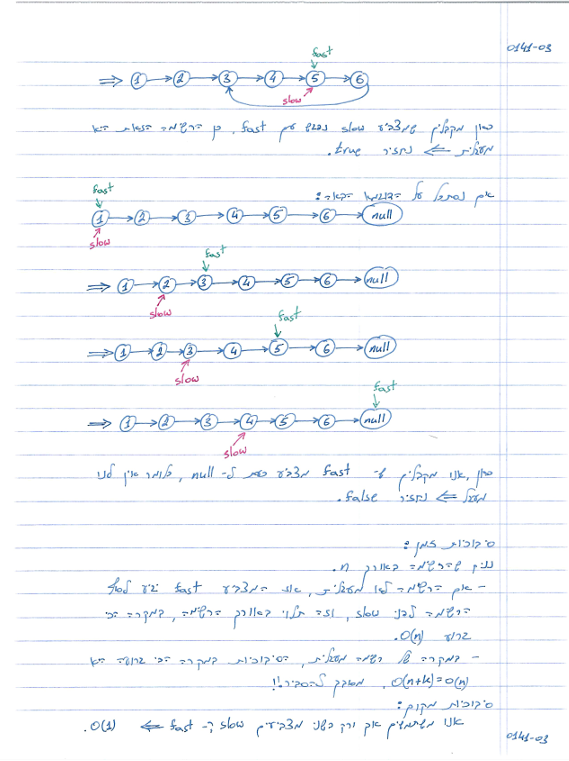 0141-03
fast
⇒ 1 → 2 → 3 → 4 → 5 → 6
slow
כאן מקבלים שמצביע slow נפגש עם fast, כן הרשימה הזאת היא
מעגלית ⇐ נחזיר true.
אם נסתכל על הדוגמא הבאה:
fast
1 → 2 → 3 → 4 → 5 → 6 → null
slow
fast
⇒ 1 → 2 → 3 → 4 → 5 → 6 → null
slow
fast
⇒ 1 → 2 → 3 → 4 → 5 → 6 → null
slow
fast
⇒ 1 → 2 → 3 → 4 → 5 → 6 → null
slow
כאן, אנו מקבלים ש- fast מצביע כעת ל- null, כלומר אין לנו
מעגל ⇐ נחזיר false.
סיבוכיות זמן:
נניח שהרשימה באורך n.
- אם הרשימה לא מעגלית, אז המצביע fast יגיע לסוף
הרשימה לפני slow, וזה תלוי באורך הרשימה, במקרה הכי
גרוע O(n).
- במקרה של רשימה מעגלית, הסיבוכיות במקרה הכי גרוע היא
O(n+k)=O(n). מסובך להסביר!!
סיבוכיות מקום:
אנו משתמשים אך ורק בשני מצביעים slow ו- fast ⇐ O(1).
0141-03